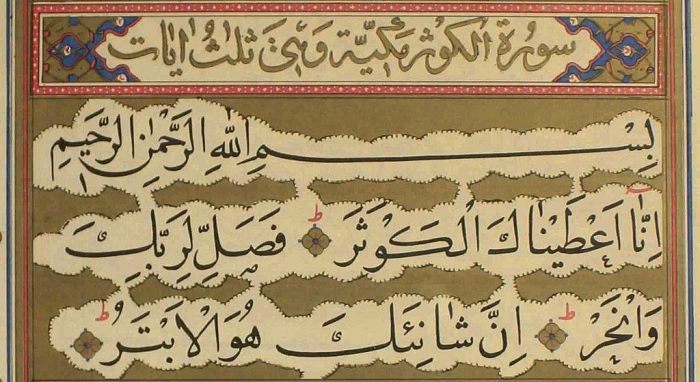 سورة الكوثر مكية وهى ثلث ايات
بِسْمِ اللّٰهِ الرَّحْمٰنِ الرَّحِيمِ
اِنَّٓا اَعْطَيْنَاكَ الْكَوْثَرَ ط فَصَلِّ لِرَبِّكَ
وَانْحَرْ ط اِنَّ شَانِئَكَ هُوَ الْاَبْتَرُ ط